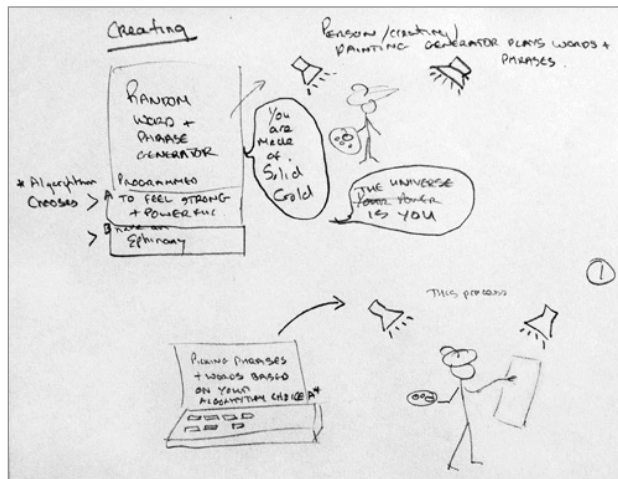 Creating
PERSON/CREATING/
PAINTING GENERATOR PLAYS WORDS +
PHRASES.
RANDOM
WORD +
PHRASE
GENERATOR
PROGRAMMED
* Algorythm
Chooses >
A TO FEEL STRONG
+ POWERFUL.
> B have an
Ephinany
You
are
Made
of
Solid
Gold
THE UNIVERSE
YOUR POWER
IS YOU
1
THIS PROCESS
PICKING PHRASES
+ WORDS BASED
ON YOUR
ALGORYTHM CHOICE A*